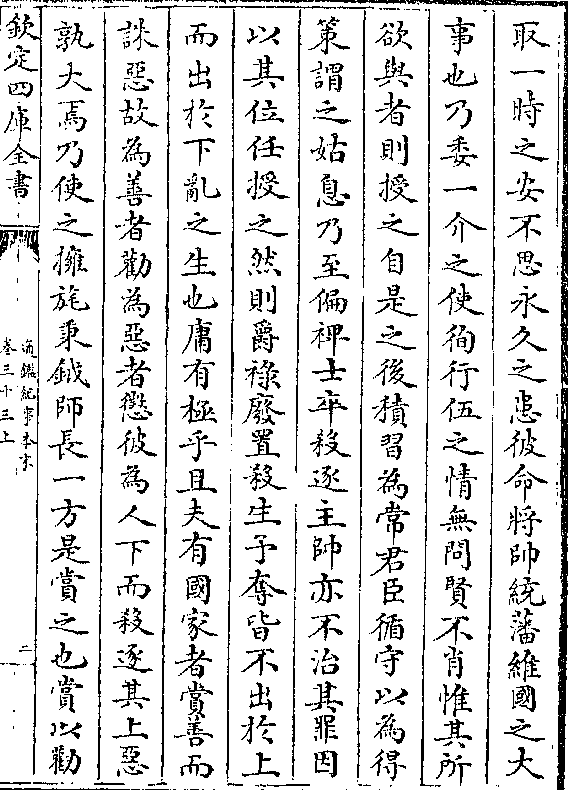 取一時之安不思永久之患彼命將帥統藩維國之大
事也乃委一介之使徇行伍之情無問賢不肖惟其所
欲與者則授之自是之後積習為常君臣循守以為得
策謂之姑息乃至偏裨士卒殺逐主帥亦不治其罪因
以其位任授之然則爵祿廢置殺生予奪皆不出於上
而出於下亂之生也庸有極乎且夫有國家者賞善而
誅惡故為善者勸為惡者懲彼為人下而殺逐其上惡
孰大焉乃使之擁旄秉鉞師長一方是賞之也賞以勸
欽定四庫全書
通鑑紀事本末
卷三十三上
二